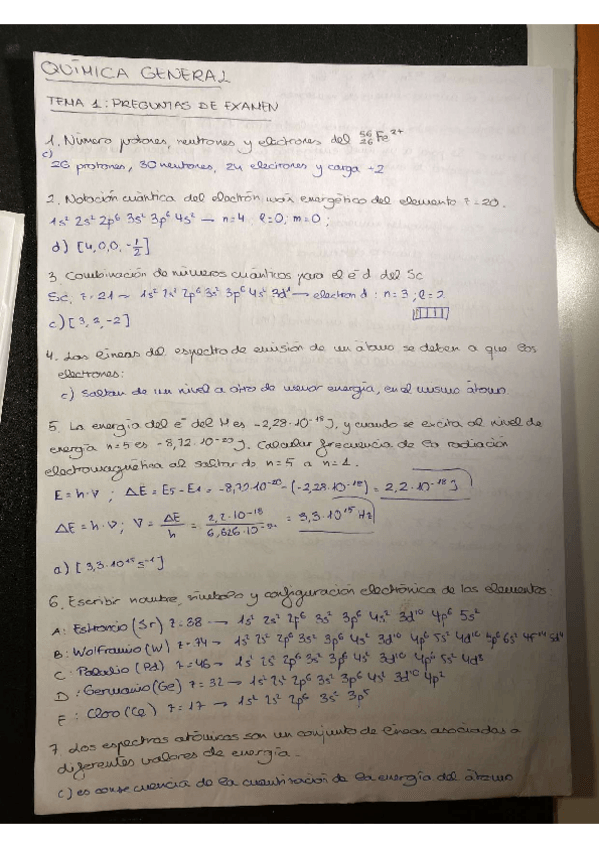 QUÍMICA GENERAL
TEMA 1: PREGUNTAS DE EXAMEN
1. Número protones, neutrones y electrones del ⁵⁶₂₆Fe²⁺
c)
26 protones, 30 neutrones, 24 electrones y carga +2
2. Notación cuántica del electrón más energético del elemento z=20.
1s² 2s² 2p⁶ 3s² 3p⁶ 4s² → n=4 ℓ=0; m=0;
d) [4,0,0,-1/2]
3. Combinación de números cuánticos para el e⁻ d del Sc
Sc, z=21 → 1s² 2s² 2p⁶ 3s² 3p⁶ 4s² 3d¹ → electron d: n=3; ℓ=2
c) [3,2,-2]
4. Las líneas del espectro de emisión de un átomo se deben a que los
electrones:
c) Saltan de un nivel a otro de menor energía, en el mismo átomo.
5. La energía del e⁻ del H es -2,28·10⁻¹⁸J, y cuando se excita al nivel de
energía n=5 es -8,72·10⁻²⁰J. Calcular frecuencia de la radiación
electromagnética al saltar de n=5 a n=1.
E=h·V; ΔE=E5-E1= -8,72·10⁻²⁰-(-2,28·10⁻¹⁸)= 2,2·10⁻¹⁸J
ΔE=h·V; V= ΔE/h = 2,2·10⁻¹⁸/6,626·10 = 3,3·10¹⁵Hz
a) [3,3·10¹⁵ s⁻¹]
6. Escribir nombre, símbolo y configuración electrónica de los elementos:
A: Estroncio (Sr) z=38 → 1s² 2s² 2p⁶ 3s² 3p⁶ 4s² 3d¹⁰ 4p⁶ 5s²
B: Wolframio (W) z=74 → 1s² 2s² 2p⁶ 3s² 3p⁶ 4s² 3d¹⁰ 4p⁶ 5s² 4d¹⁰ 5p⁶ 6s² 4f¹⁴ 5d⁴
C: Paladio (Pd) z=46 → 1s² 2s² 2p⁶ 3s² 3p⁶ 4s² 3d¹⁰ 4p⁶ 5s² 4d⁸
D: Germanio (Ge) z=32 → 1s² 2s² 2p⁶ 3s² 3p⁶ 4s² 3d¹⁰ 4p²
E: Cloro (Cl) z=17 → 1s² 2s² 2p⁶ 3s² 3p⁵
7. Los espectros atómicos son un conjunto de líneas asociadas a
diferentes valores de energía.
c) es consecuencia de la cuantización de la energía del átomo